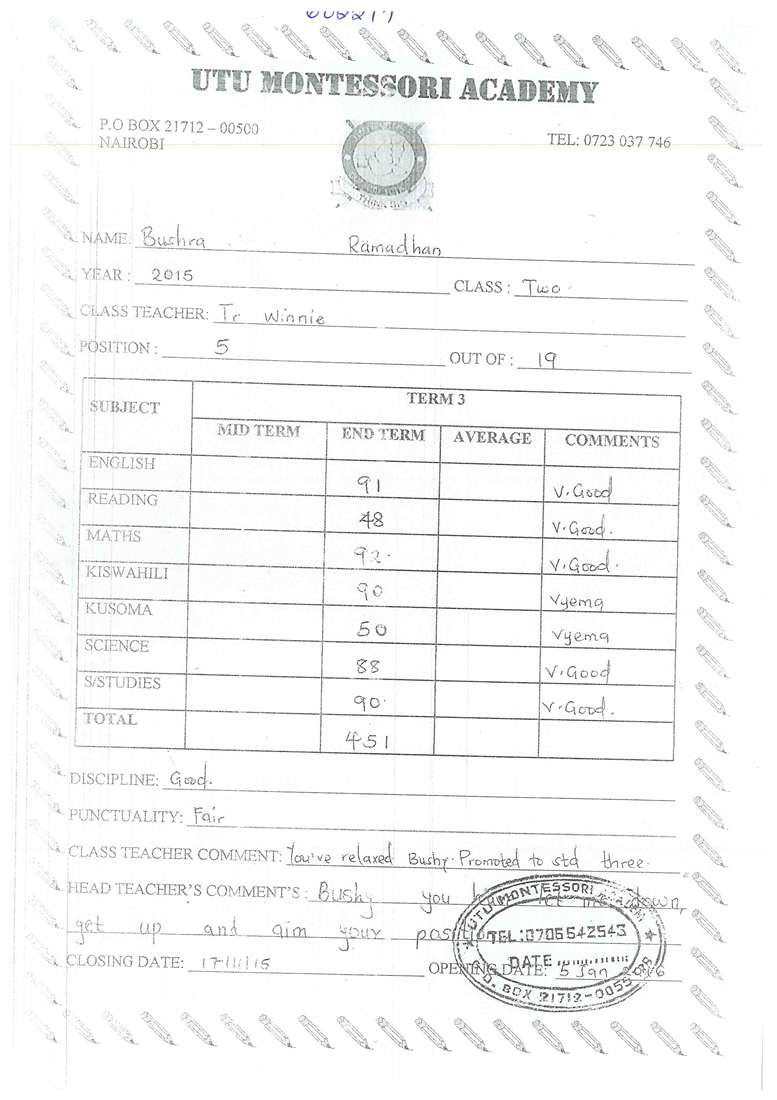 UTU MONTESSORI ACADEMY
P.O BOX 21712 – 00500
NAIROBI
TEL: 0723 037 746
NAME: Bushra Ramadhan
YEAR : 2015 CLASS : Two
CLASS TEACHER: Tr Winnie
POSITION : 5 OUT OF : 19
SUBJECT TERM 3
MID TERM END TERM AVERAGE COMMENTS
ENGLISH 91 V.Good
READING 48 V.Good.
MATHS 92. V.Good.
KISWAHILI 90 Vyema
KUSOMA 50 Vyema
SCIENCE 88 V.Good
S/STUDIES 90. V.Good.
TOTAL 451
DISCIPLINE: Good.
PUNCTUALITY: Fair
CLASS TEACHER COMMENT: You've relaxed Bushy. Promoted to std three.
HEAD TEACHER'S COMMENT'S : Bushy you let me down,
get up and aim your position
CLOSING DATE: 17/11/15 OPENING DATE: 5 Jan
UTU MONTESSORI
TEL:0706542543
DATE
P.O. BOX 21712-00